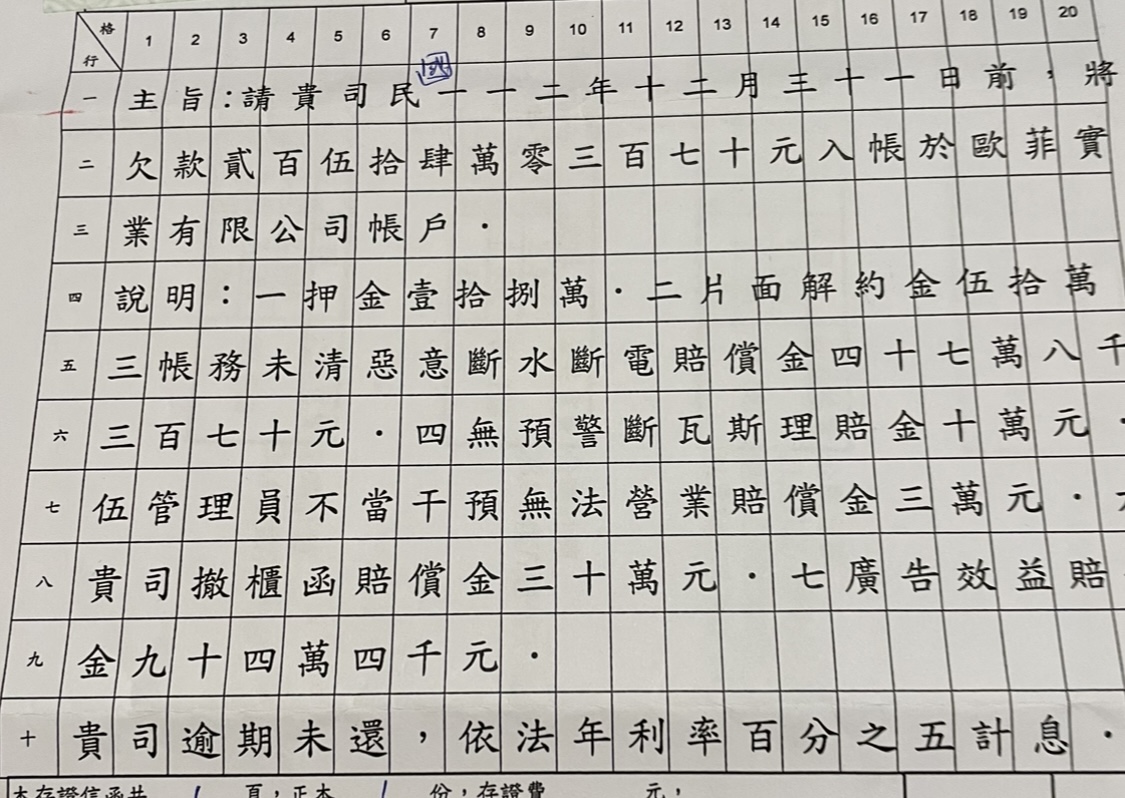 格 1 2 3 4 5 6 7 8 9 10 11 12 13 14 15 16 17 18 19 20
行
國
一 主旨：請貴司民一一二年十二月三十一日前，將
二 欠款貳百伍拾肆萬零三百七十元入帳於歐菲實
三 業有限公司帳戶．
四 說明：一押金壹拾捌萬．二片面解約金伍拾萬
五 三帳務未清惡意斷水斷電賠償金四十七萬八千
六 三百七十元．四無預警斷瓦斯理賠金十萬元．
七 伍管理員不當干預無法營業賠償金三萬元．
八 貴司撤櫃函賠償金三十萬元．七廣告效益賠
九 金九十四萬四千元．
十 貴司逾期未還，依法年利率百分之五計息．
本存證信函共 1 頁，正本 1 份，存證費 元，